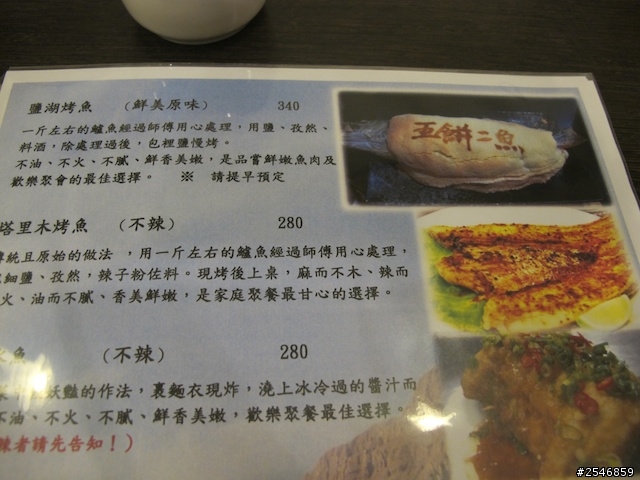 鹽湖烤魚 （鮮美原味） 340
一斤左右的鱸魚經過師傅用心處理，用鹽、孜然、
料酒，除處理過後，包裡鹽慢烤。
不油、不火、不膩、鮮香美嫩，是品嘗鮮嫩魚肉及
歡樂聚會的最佳選擇。 ※ 請提早預定
五餅二魚
塔里木烤魚 （不辣） 280
統且原始的做法 ，用一斤左右的鱸魚經過師傅用心處理，
細鹽、孜然，辣子粉佐料。現烤後上桌，麻而不木、辣而
火、油而不膩、香美鮮嫩，是家庭聚餐最甘心的選擇。
魚 （不辣） 280
妖豔的作法，裹麵衣現炸，澆上冰冷過的醬汁而
不油、不火、不膩、鮮香美嫩，歡樂聚餐最佳選擇。
辣者請先告知！）
#2546859